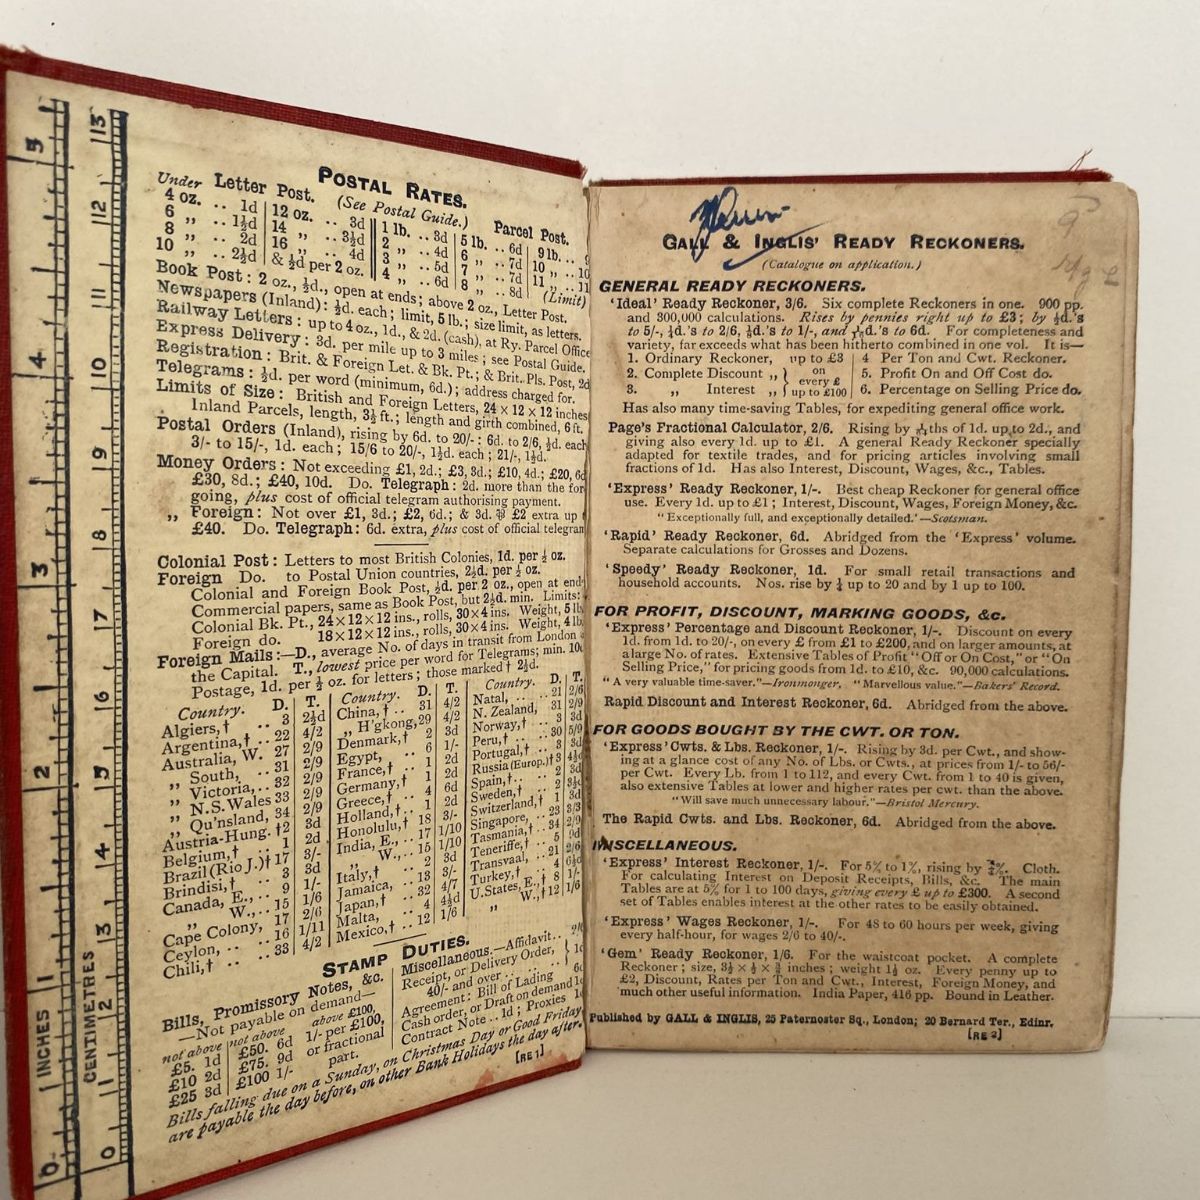 INCHES
CENTIMETRES
POSTAL RATES.
(See Postal Guide.)
Under Letter Post. Parcel Post.
4 oz. .. 1d | 12 oz. .. 3d | 1 lb. .. 3d | 5 lb. .. 6d | 9 lb. ..
6 „ .. 1½d | 14 „ .. 3½d | 2 „ .. 4d | 6 „ .. 7d | 10 „ .. 10
8 „ .. 2d | 16 „ .. 4d | 3 „ .. 5d | 7 „ .. 7d | 11 „ .. 11
10 „ .. 2½d | & ½d per 2 oz. | 4 „ .. 6d | 8 „ .. 8d | (Limit)
Book Post: 2 oz., ½d., open at ends; above 2 oz., Letter Post.
Newspapers (Inland): ½d. each; limit, 5 lb.; size limit, as letters.
Railway Letters: up to 4 oz., 1d., & 2d. (cash), at Ry. Parcel Office
Express Delivery: 3d. per mile up to 3 miles; see Postal Guide.
Registration: Brit. & Foreign Let. & Bk. Pt.; & Brit. Pls. Post, 2d
Telegrams: ½d. per word (minimum, 6d.); address charged for.
Limits of Size: British and Foreign Letters, 24 × 12 × 12 inches
Inland Parcels, length, 3½ ft.; length and girth combined, 6 ft.
Postal Orders (Inland), rising by 6d. to 20/-: 6d. to 2/6, ½d. each
3/- to 15/-, 1d. each; 15/6 to 20/-, 1½d. each; 21/-, 1½d.
Money Orders: Not exceeding £1, 2d.; £3, 3d.; £10, 4d.; £20, 6d
£30, 8d.; £40, 10d. Do. Telegraph: 2d. more than the for
going, plus cost of official telegram authorising payment.
„ Foreign: Not over £1, 3d.; £2, 6d.; & 3d. ⅌ £2 extra up
£40. Do. Telegraph: 6d. extra, plus cost of official telegram
Colonial Post: Letters to most British Colonies, 1d. per ½ oz.
Foreign Do. to Postal Union countries, 2½d. per ½ oz.
Colonial and Foreign Book Post, ½d. per 2 oz., open at end
Commercial papers, same as Book Post, but 2½d. min. Limits:
Colonial Bk. Pt., 24 × 12 × 12 ins., rolls, 30 × 4 ins. Weight, 5 lb
Foreign do. 18 × 12 × 12 ins., rolls, 30 × 4 ins. Weight, 4 lb
Foreign Mails:—D., average No. of days in transit from London
the Capital. T., lowest price per word for Telegrams; min. 10d
Postage, 1d. per ½ oz. for letters; those marked † 2½d.
Country. D. T. | Country. D. T. | Country. D. T.
Algiers,† 3 2½d | China,† .. 31 4/2 | Natal, .. 21 2/6
Argentina,† .. 22 4/2 | „ H'gkong, 29 4/2 | N. Zealand, 31 2/9
Australia, W. 27 2/9 | Denmark,† 2 3d | Norway,† .. 3 3d
„ South, .. 31 2/9 | Egypt, .. 6 1/- | Peru,† .. 30 5/9
„ Victoria, .. 32 2/9 | France,† .. 1 2d | Portugal,† .. 3 3d
„ N.S.Wales 33 2/9 | Germany,† 1 2d | Russia (Europ.)† 3
„ Qu'nsland, 34 2/9 | Greece,† .. 4 6d | Spain,† .. 2 3d
Austria-Hung. †2 3d | Holland,† .. 1 2d | Sweden,† .. 2
Belgium,† .. 1 2d | Honolulu,† 18 3/- | Switzerland,† 1 3d
Brazil (Rio J.)† 17 3/- | India, E., .. 17 1/10 | Singapore, .. 23 3/3
Brindisi,† .. 3 3d | „ W., .. 15 1/10 | Tasmania,† .. 34 2/9
Canada, E., .. 9 1/- | Italy,† .. 2 3d | Teneriffe,† .. 5 9d
„ W., .. 15 1/6 | Jamaica, .. 13 3/- | Transvaal, .. 21 2/6
Cape Colony, 17 2/6 | Japan,† .. 32 4/7 | Turkey,† .. 4 6½d
Ceylon, .. 16 1/11 | Malta, .. 4 4½d | U.States, E.,† 8 1/-
Chili,† .. 33 4/2 | Mexico,† .. 12 1/6 | „ W.,† 12 1/6
STAMP DUTIES.
Bills, Promissory Notes, &c.
—Not payable on demand—
not above | not above | above £100,
£5. 1d | £50. 6d | 1/- per £100,
£10 2d | £75. 9d | or fractional
£25 3d | £100 1/- | part.
Miscellaneous.—Affidavit..
Receipt, or Delivery Order,
40/- and over .. ..
Agreement: Bill of Lading 6d
Cash order, or Draft on demand 1d
Contract Note .. 1d; Proxies
Bills falling due on a Sunday, on Christmas Day or Good Friday
are payable the day before, on other Bank Holidays the day after.
[RE 1]
GALL & INGLIS' READY RECKONERS.
(Catalogue on application.)
GENERAL READY RECKONERS.
'Ideal' Ready Reckoner, 3/6. Six complete Reckoners in one. 900 pp.
and 300,000 calculations. Rises by pennies right up to £3; by ½d.'s
to 5/-, ¼d.'s to 2/6, ⅛d.'s to 1/-, and 1/16d.'s to 6d. For completeness and
variety, far exceeds what has been hitherto combined in one vol. It is—
1. Ordinary Reckoner, up to £3 | 4 Per Ton and Cwt. Reckoner.
2. Complete Discount „ } on every £ up to £100 | 5. Profit On and Off Cost do.
3. „ Interest „ | 6. Percentage on Selling Price do.
Has also many time-saving Tables, for expediting general office work.
Page's Fractional Calculator, 2/6. Rising by ths of 1d. up to 2d., and
giving also every 1d. up to £1. A general Ready Reckoner specially
adapted for textile trades, and for pricing articles involving small
fractions of 1d. Has also Interest, Discount, Wages, &c., Tables.
'Express' Ready Reckoner, 1/-. Best cheap Reckoner for general office
use. Every 1d. up to £1; Interest, Discount, Wages, Foreign Money, &c.
"Exceptionally full, and exceptionally detailed."—Scotsman.
'Rapid' Ready Reckoner, 6d. Abridged from the 'Express' volume.
Separate calculations for Grosses and Dozens.
'Speedy' Ready Reckoner, 1d. For small retail transactions and
household accounts. Nos. rise by ¼ up to 20 and by 1 up to 100.
FOR PROFIT, DISCOUNT, MARKING GOODS, &c.
'Express' Percentage and Discount Reckoner, 1/-. Discount on every
1d. from 1d. to 20/-, on every £ from £1 to £200, and on larger amounts, at
a large No. of rates. Extensive Tables of Profit "Off or On Cost," or "On
Selling Price," for pricing goods from 1d. to £10, &c. 90,000 calculations.
"A very valuable time-saver."—Ironmonger. "Marvellous value."—Bakers' Record.
Rapid Discount and Interest Reckoner, 6d. Abridged from the above.
FOR GOODS BOUGHT BY THE CWT. OR TON.
'Express' Cwts. & Lbs. Reckoner, 1/-. Rising by 3d. per Cwt., and show-
ing at a glance cost of any No. of Lbs. or Cwts., at prices from 1/- to 56/-
per Cwt. Every Lb. from 1 to 112, and every Cwt. from 1 to 40 is given,
also extensive Tables at lower and higher rates per cwt. than the above.
"Will save much unnecessary labour."—Bristol Mercury.
The Rapid Cwts. and Lbs. Reckoner, 6d. Abridged from the above.
MISCELLANEOUS.
'Express' Interest Reckoner, 1/-. For 5% to 1%, rising by Cloth.
For calculating Interest on Deposit Receipts, Bills, &c. The main
Tables are at 5% for 1 to 100 days, giving every £ up to £300. A second
set of Tables enables interest at the other rates to be easily obtained.
'Express' Wages Reckoner, 1/-. For 48 to 60 hours per week, giving
every half-hour, for wages 2/6 to 40/-.
'Gem' Ready Reckoner, 1/6. For the waistcoat pocket. A complete
Reckoner; size, 3½ × ½ × ¾ inches; weight 1½ oz. Every penny up to
£2, Discount, Rates per Ton and Cwt., Interest, Foreign Money, and
much other useful information. India Paper, 416 pp. Bound in Leather.
Published by GALL & INGLIS, 25 Paternoster Sq., London; 20 Bernard Ter., Edinr.
[RE 2]